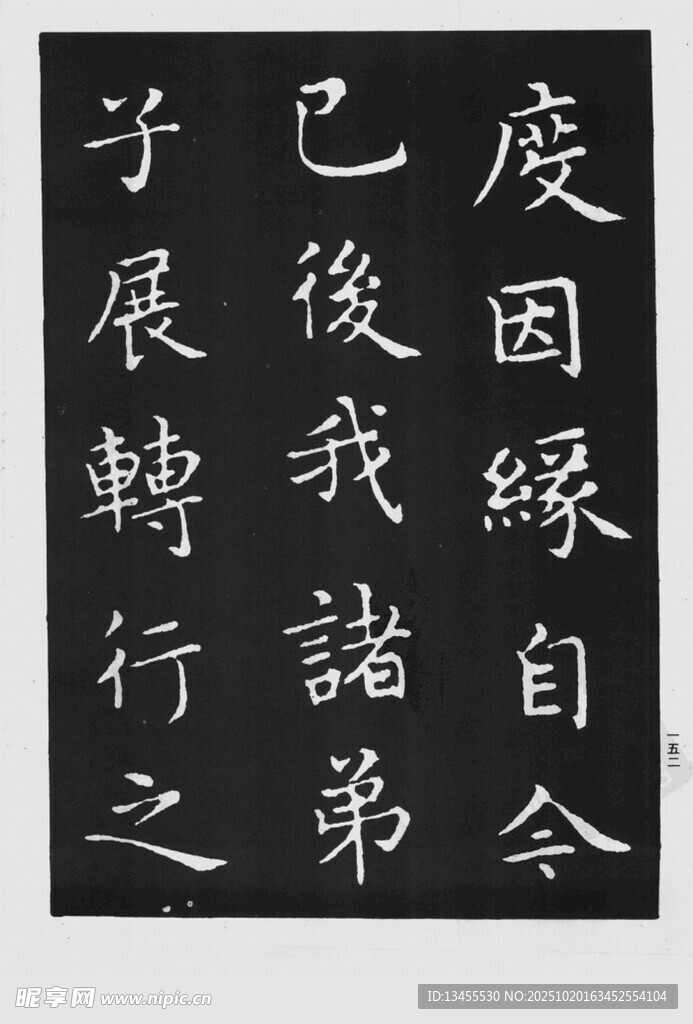 度因緣自今
已後我諸弟
子展轉行之
一五二
昵享网 www.nipic.cn
ID:13455530 NO:20251020163452554104